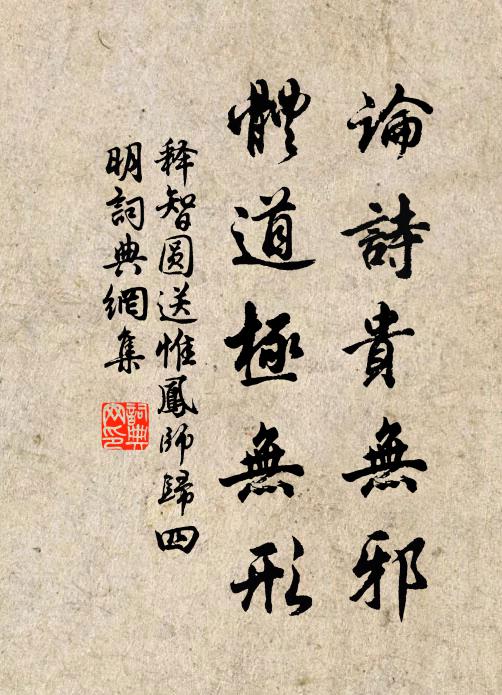 論詩貴無邪
體道極無形
释智圆送惟鳳师歸四
明詞典網集
詞典网印